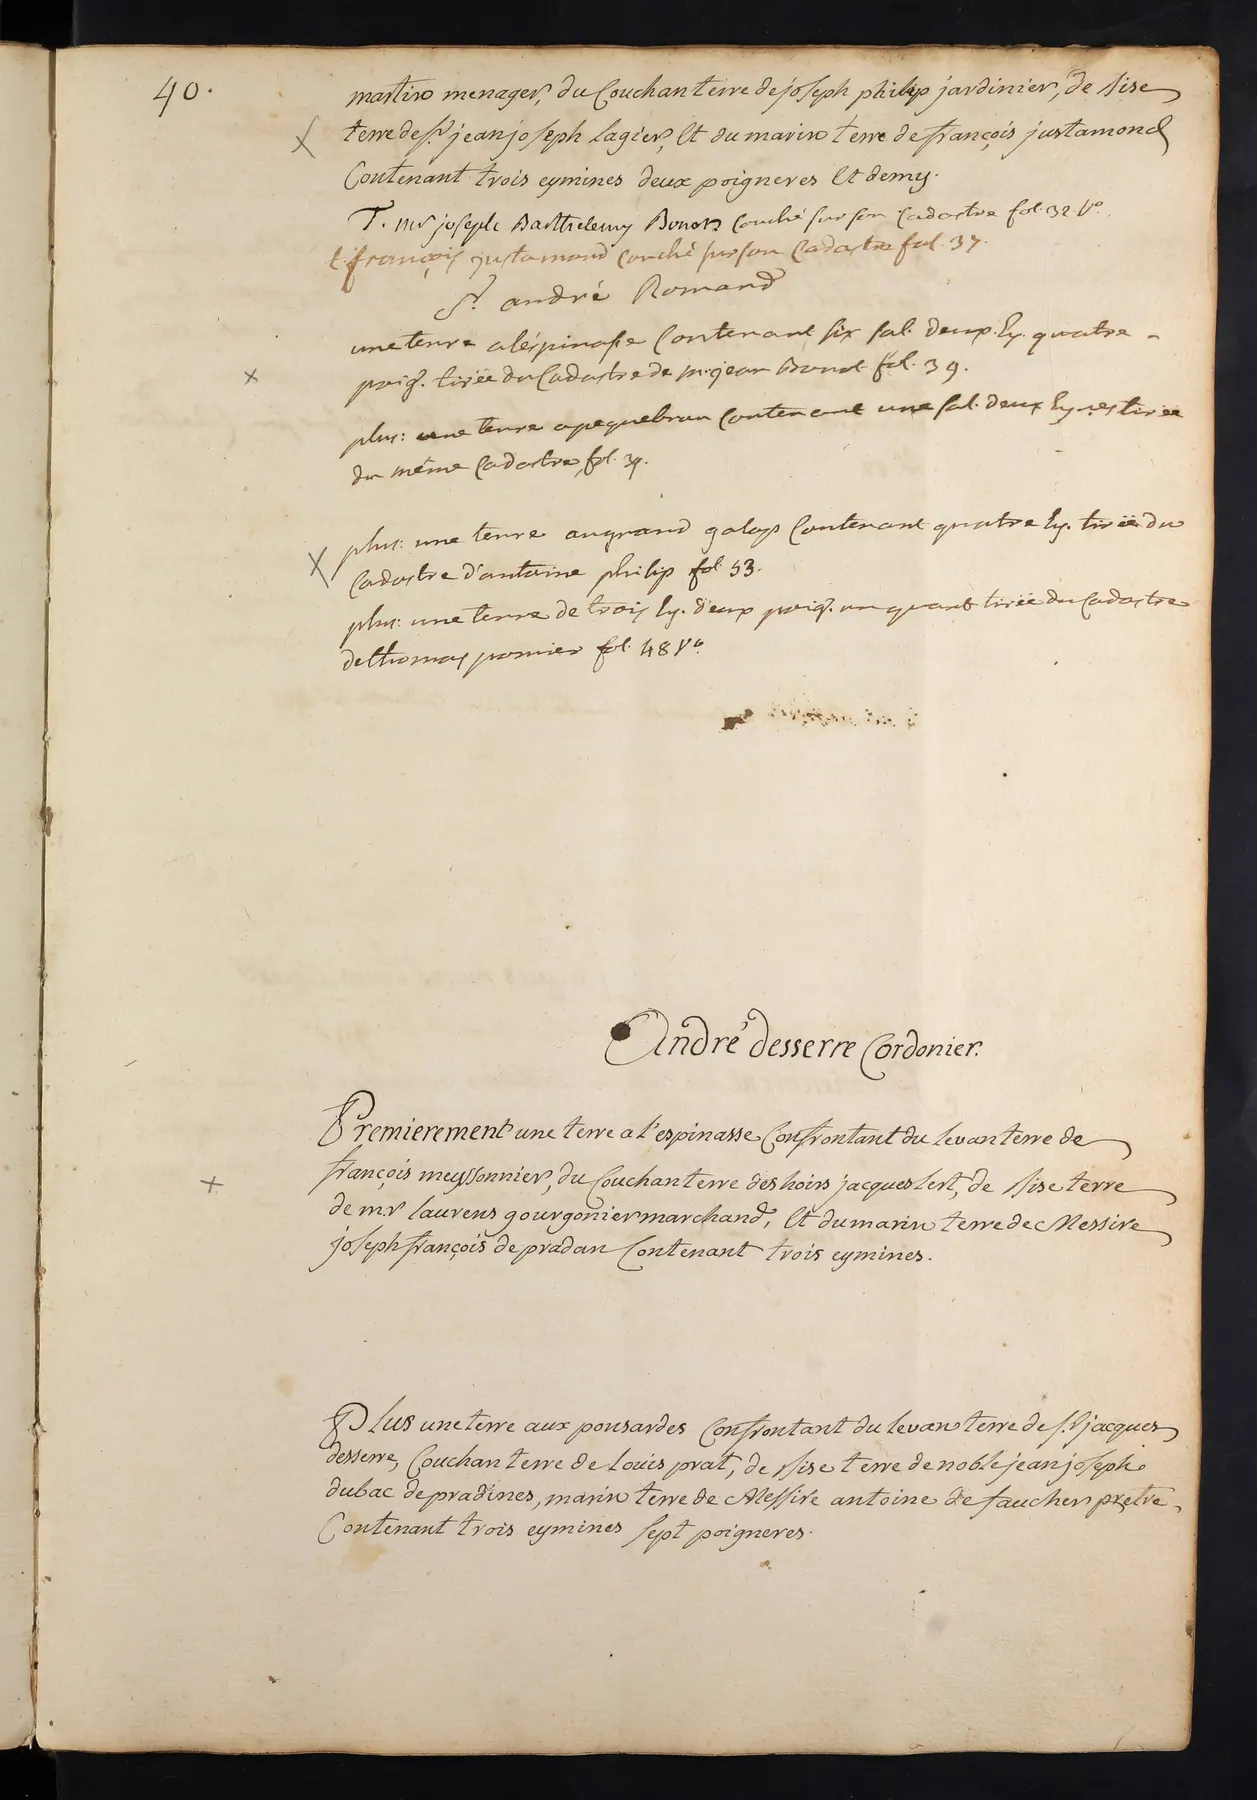 40.
martin menager, du Couchan terre de joseph philip jardinier, de bise
terre de sr. jean joseph lagier, Et du marin terre de françois justamond
Contenant trois eymines deux poigneres Et demy.
T. mr joseph Barthelemy Bonet couché sur son cadastre fol. 32 Vo.
t. françois justamond couché sur son Cadastre fol. 37.
Sr. andré Romand
une terre a léspinasse Contenant six sal. deux Ey. quatre
poig. tirée du Cadastre de mr. jean Bonet fol. 39.
plus: une terre a pequebrun Contenant une sal. deux Eymes tirée
du même Cadastre, fol. 39.
plus: une terre au grand galop Contenant quatre Ey. tirée du
Cadastre d'antoine philip fol. 53.
plus: une terre de trois Ey. deux poig. un quart tirée du Cadastre
de thomas pomier fol. 48 Vo.
André desserre Cordonier.
Premierement une terre a l'espinasse Confrontant du levan terre de
françois meyssonnier, du Couchan terre des hoirs jacques lert, de bise terre
de m.r laurens gourgonier marchand, Et du marin terre de Messire
joseph françois de pradan Contenant trois eymines.
Plus une terre aux ponsardes Confrontant du levan terre de sr. jacques
desserre, Couchan terre de louis prat, de bise terre de noble jean joseph
dubac de pradines, marin terre de Messire antoine de faucher prêtre
Contenant trois eymines sept poigneres.